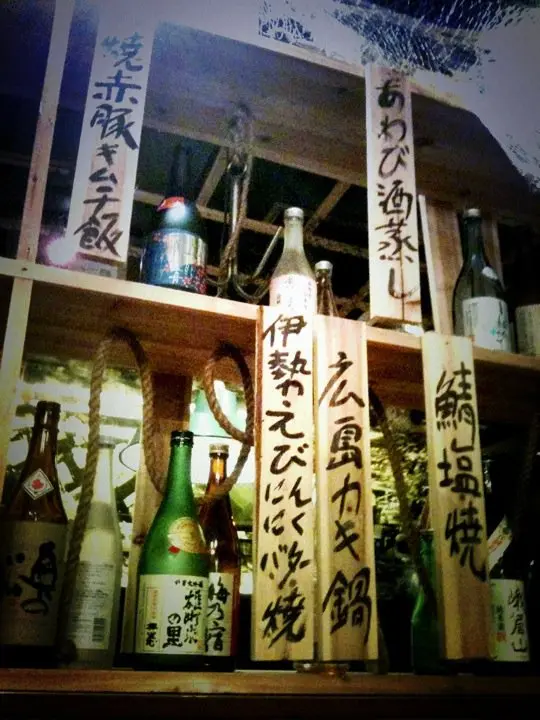 焼赤豚キムチ飯
あわび酒蒸し
伊勢えびにんにくバター焼
広島カキ鍋
鯖塩焼
梅乃宿
の里